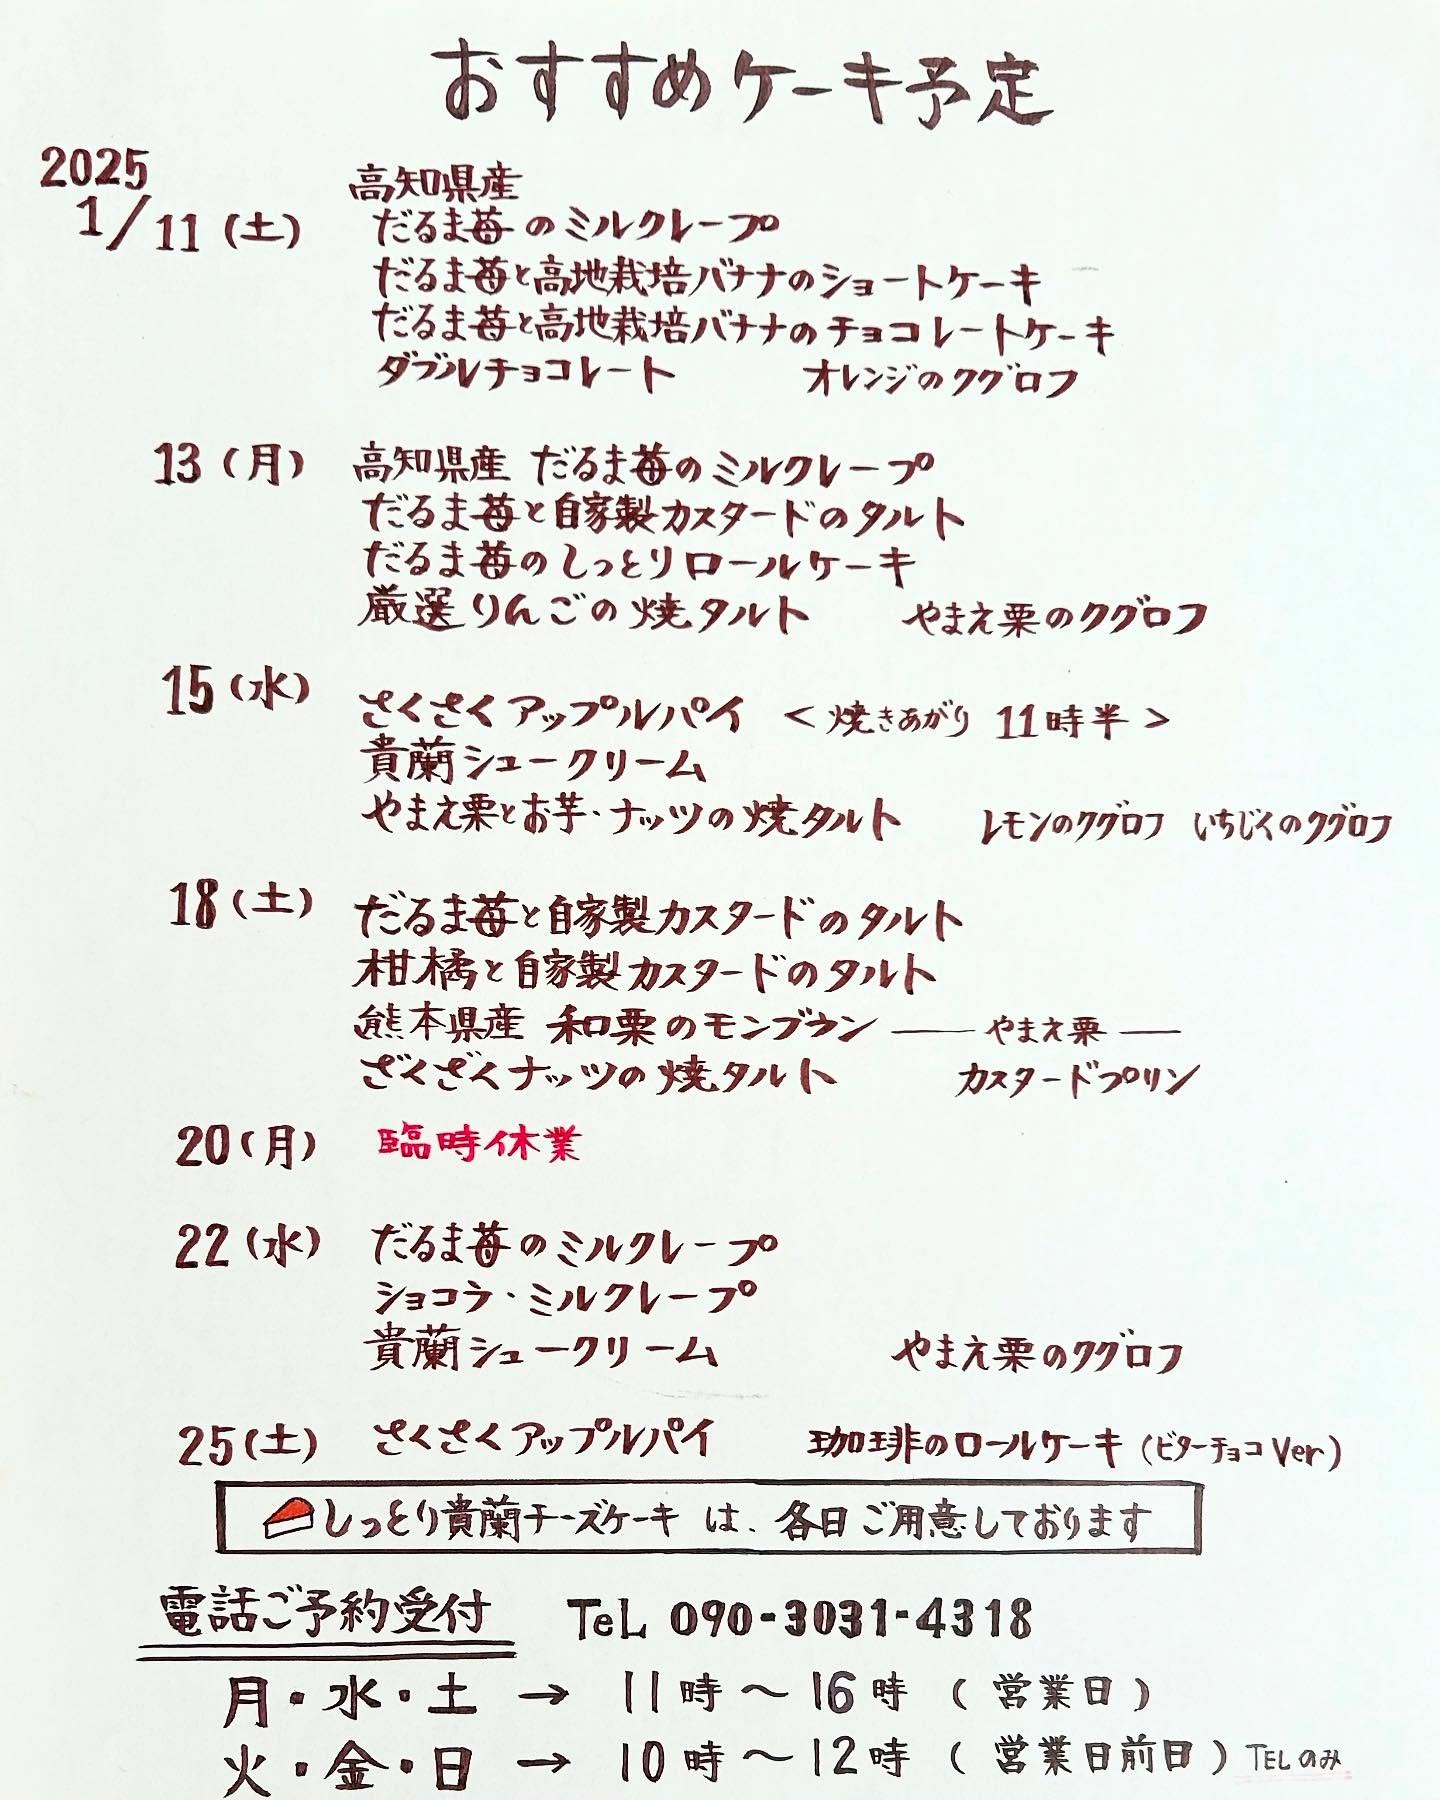 おすすめケーキ予定
2025
1/11(土) 高知県産
だるま苺のミルクレープ
だるま苺と高地栽培バナナのショートケーキ
だるま苺と高地栽培バナナのチョコレートケーキ
ダブルチョコレート オレンジのクグロフ
13(月) 高知県産 だるま苺のミルクレープ
だるま苺と自家製カスタードのタルト
だるま苺のしっとりロールケーキ
厳選りんごの焼タルト やまえ栗のクグロフ
15(水) さくさくアップルパイ <焼きあがり 11時半>
貴蘭シュークリーム
やまえ栗とお芋・ナッツの焼タルト レモンのクグロフ いちじくのクグロフ
18(土) だるま苺と自家製カスタードのタルト
柑橘と自家製カスタードのタルト
熊本県産 和栗のモンブラン ── やまえ栗 ──
ざくざくナッツの焼タルト カスタードプリン
20(月) 臨時休業
22(水) だるま苺のミルクレープ
ショコラ・ミルクレープ
貴蘭シュークリーム やまえ栗のクグロフ
25(土) さくさくアップルパイ 珈琲のロールケーキ(ビターチョコVer)
しっとり貴蘭チーズケーキ は、各日ご用意しております
電話ご予約受付 TeL 090-3031-4318
月・水・土 → 11時〜16時 (営業日)
火・金・日 → 10時〜12時 (営業日前日) TELのみ